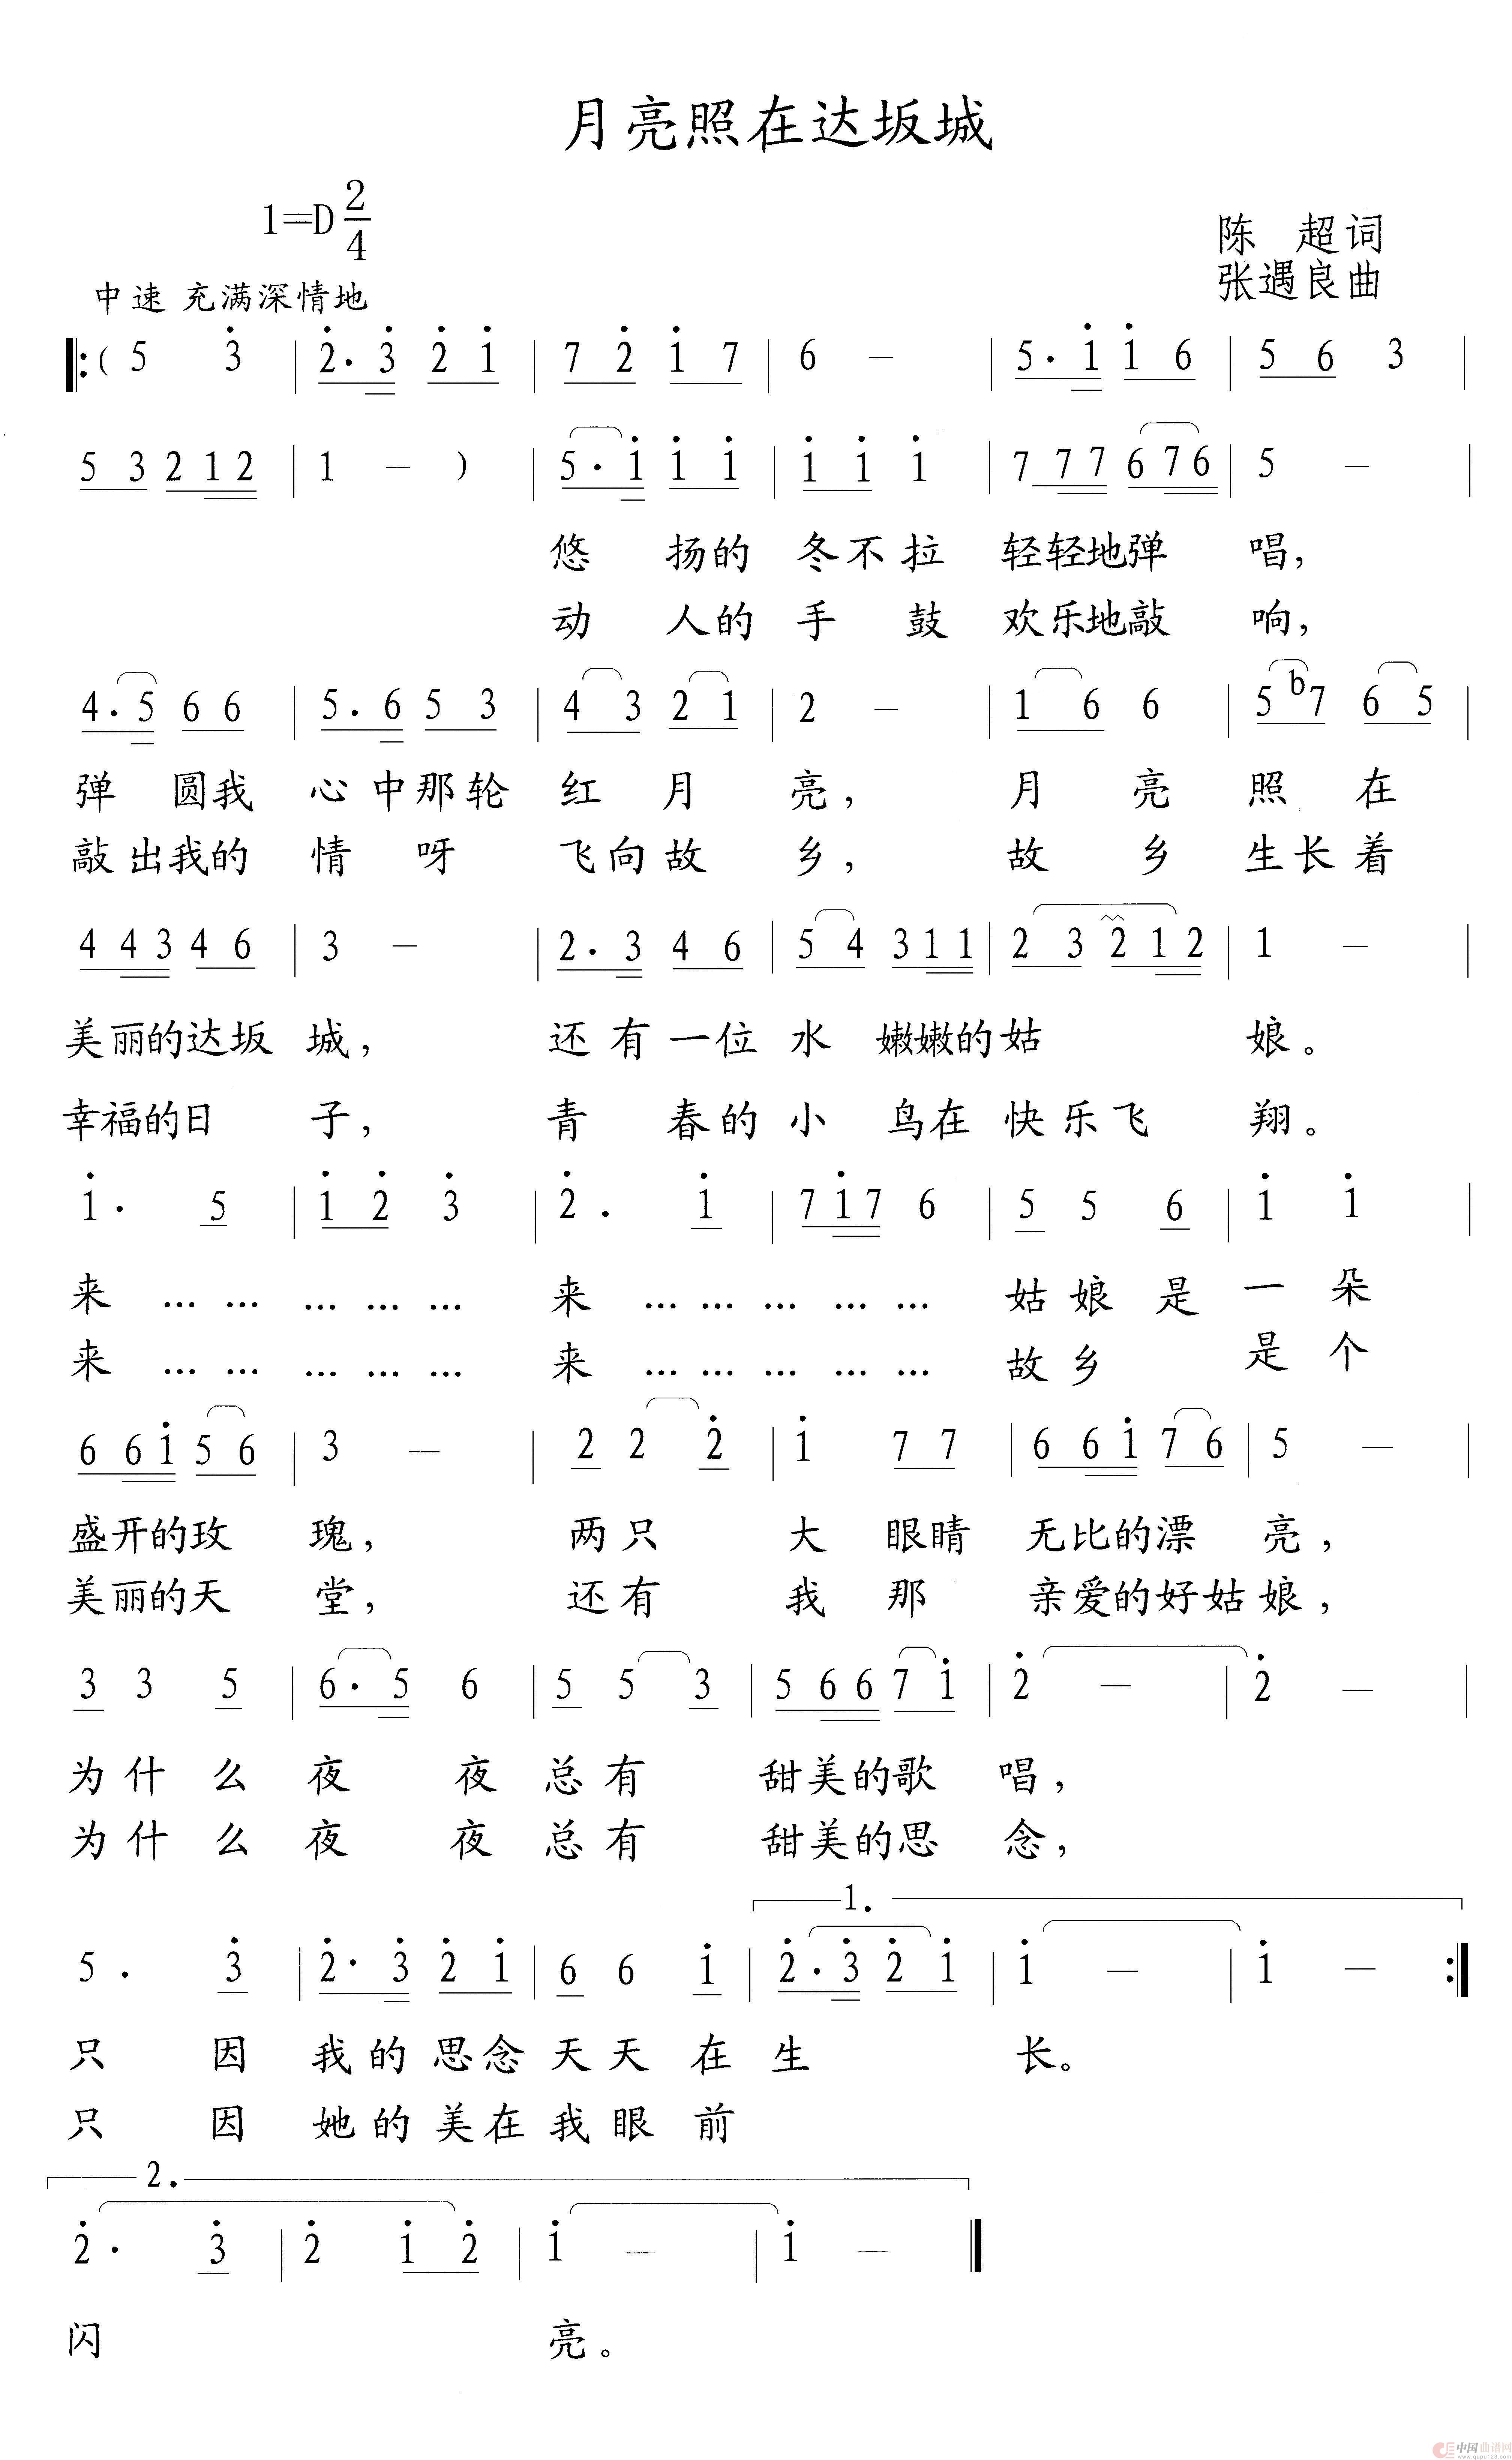 月亮照在达坂城
1=D 2/4
陈 超词
中速 充满深情地
张遇良曲
‖:( 5 3̇ | 2̇· 3̇ 2̇ 1̇ | 7 2̇ 1̇ 7 | 6 — | 5· 1̇ 1̇ 6 | 5 6 3 |
5 3 2 1 2 | 1 — ) | 5· 1̇ 1̇ 1̇ | 1̇ 1̇ 1̇ | 7 7 7 6 7 6 | 5 — |
悠 扬的 冬不拉 轻轻地弹 唱,
动 人的 手 鼓 欢乐地敲 响,
4· 5 6 6 | 5· 6 5 3 | 4 3 2 1 | 2 — | 1 6 6 | 5 b7 6 5 |
弹 圆我 心中那轮 红 月 亮, 月 亮 照 在
敲出我的 情 呀 飞向故 乡, 故 乡 生长着
4 4 3 4 6 | 3 — | 2· 3 4 6 | 5 4 3 1 1 | 2 3 2 1 2 | 1 — |
美丽的达坂 城, 还有一位 水 嫩嫩的姑 娘。
幸福的日 子, 青 春的 小 鸟在 快乐飞 翔。
1̇· 5 | 1̇ 2̇ 3̇ | 2̇· 1̇ | 7 1̇ 7 6 | 5 5 6 | 1̇ 1̇ |
来 … … … … … 来 … … … … … 姑娘是 一 朵
来 … … … … … 来 … … … … … 故乡 是 个
6 6 1̇ 5 6 | 3 — | 2 2 2̇ | 1̇ 7 7 | 6 6 1̇ 7 6 | 5 — |
盛开的玫 瑰, 两只 大 眼睛 无比的漂 亮,
美丽的天 堂, 还有 我 那 亲爱的好姑娘,
3 3 5 | 6· 5 6 | 5 5 3 | 5 6 6 7 1̇ | 2̇ — | 2̇ — |
为什么 夜 夜 总有 甜美的歌 唱,
为什么 夜 夜 总有 甜美的思 念,
1.
5· 3̇ | 2̇· 3̇ 2̇ 1̇ | 6 6 1̇ | 2̇· 3̇ 2̇ 1̇ | 1̇ — | 1̇ — :‖
只 因 我的思念 天天在 生 长。
只 因 她的美在 我眼前
2.
2̇· 3̇ | 2̇ 1̇ 2̇ | 1̇ — | 1̇ — ‖
闪 亮。
中国曲谱网
www.qupu123.com